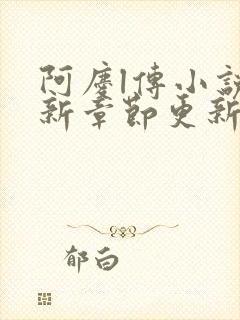 阿塵l傳小說
新章節更新
郁白